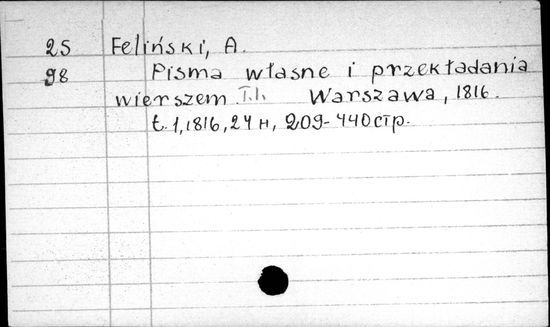 25 Feliński, A.
98 Pisma własne i przekładania
wierszem T.I. Warszawa, 1816.
t. 1, 1816, 24 н, 209-440 стр.